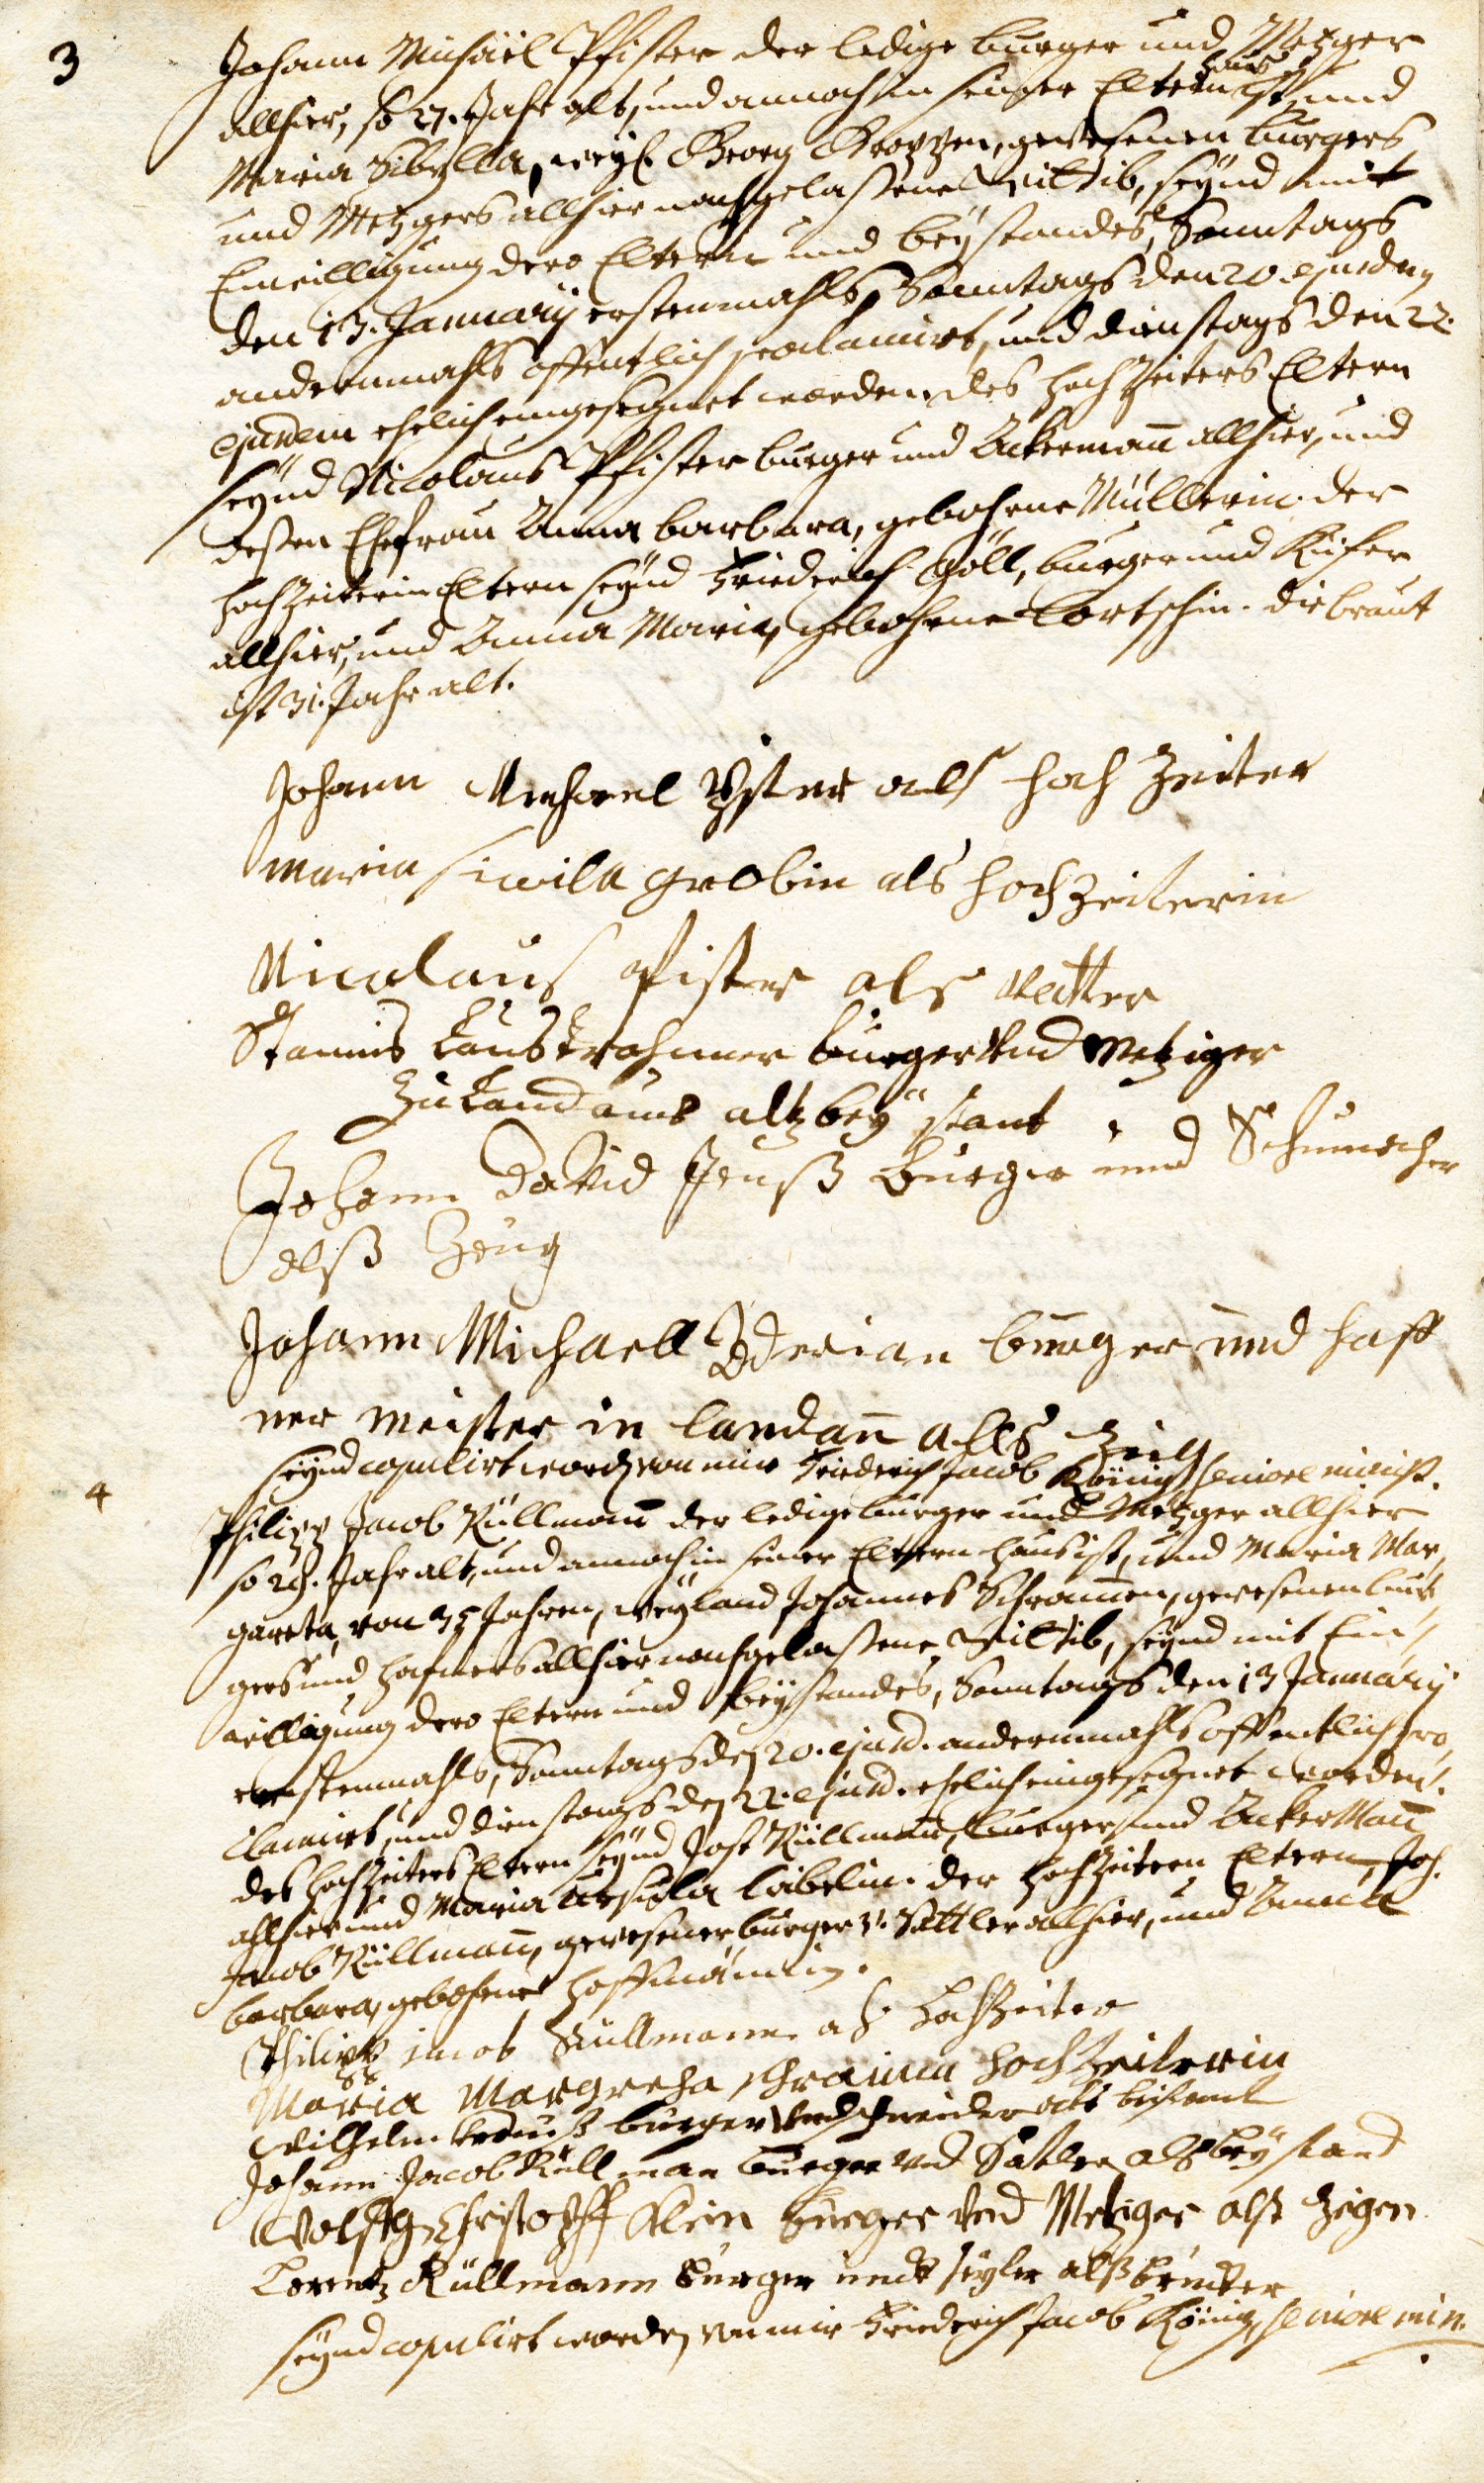 3
Johann Michäel Pfister der ledige burger und Metzger
allhier, so 27. Jahr alt, und annoch in seiner Eltern haus ist, und
Maria Sibylla, weyl. Georg Groppen, gewesenen burgers
und Metzgers allhier nachgelaßene Wittib, seynd mit
Einwilligung dero Eltern und beystandes, Sonntags
den 13. January erstenmahls, Sonntags den 20. ejusdem
andernmahls offentlich proclamirt, und dienstags den 22.
ejusdem ehelich eingesegnet worden. des hochzeiters Eltern
seynd Nicolaus Pfister burger und Ackermañ allhier, und
deßen Ehefrau Anna barbara, gebohrne Müllerin. der
hochzeiterin Eltern seynd Friederich Göll, burger und Küfer
allhier, und Anna Maria, gebohrne Lortschin. die braut
ist 31. Jahr alt.
Johann Michael Pfister als hoch Zeiter
maria siwila grobin als hochzeiterin
Nicolaus Pfister als Vatter
burger Und Metziger
Zu Landauw altz bey stant
Johann David Burger und Schumacher
alß Zeug
Johann Michaell Adrian burger und haff
ner meister in landaũ alls Zeig
seynd copulirt worden von mir Friederich Jacob König seniore minist.
4
Philipp Jacob Küllmañ der ledige burger und Metzger allhier
so 29. Jahr alt, und annoch in seiner Eltern haus ist, und Maria Mar,
gareta, von 35 Jahren, weyland Johannes Schrammen, gewesenen bur,
gers und hafners allhier nachgelaßene Wittib, seynd mit Ein,
willigung dero Eltern und beystandes, Sonntags den 13 January
erstenmahls, Sonntags den 20. ejusd. andernmahls offentlich pro,
clamirt, und dienstags den 22. ejusd. ehelich eingesegnet worden.
des hochzeiters Eltern seynd Jost Küllmañ, burger und Ackermañ
allhier und Maria Ursula läbelin. der hochzeiterin Eltern, Joh.
Jacob Küllmañ, gewesener burger u. Sattler allhier, und Anna
barbara, gebohrne hoffmännin.
Philipp jacob Küllmann als hochzeiter
Maria Margreha schramin hochzeiterin
Wilhelm Krauß burger Und schneider als beistant
Johann Jacob Küllman burger und Satler als bey stand
Wolffg Christopff Klein burger Und Metziger alß Zeigen
Lorentz Küllmann burger undt seyler alß bruder
seynd copulirt worden von mir Friederich Jacob König, seniore min.